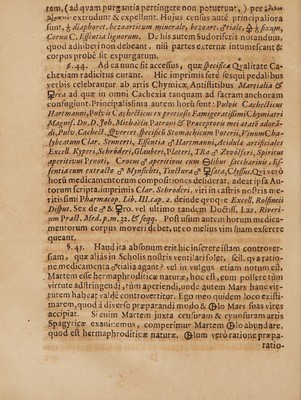 rem, (ad quam pertingere non potuerunt,)
extrudunt & expellunt. Hujus census autè principaliora
sunt, ♁ diaphoret. bezoarticum minerale, bezoart. fixum,
Cornu C. Essentia lignorum. De his autem Sudoriferis notandum,
quod adhiberi non debeant, nisi partes externæ intumescant &
corpus probè sit expurgatum.
§. 44. Ad ea nunc fit accessus, quæ specificâ Qualitate Ca-
chexiam radicitus curant. Hic imprimis ferè sesqui pedalibus
verbis celebrantur ab artis Chymicæ Antistitibus Martialia &
rea ad quæ in omni Cachexia tanquam ad sacram anchoram
confugiunt. Principalissima autem horū sunt: Pulvis Cachecticus
Hartmanni, Pulvis Cachecticus ex pretiosis Emeragdissimi Chymiatri
Magnif. Dn. D. Joh. Michaëlis Patroni & Præceptoris mei ætatē adoran-
di, Pulv. Cachect. Quercet. Specificū Stomachicum Poterii, Vinum Cha-
lybeatum Clar. Senneri, Essentia ♂ Hartmanni, Acidulæ artificiales
Excell. Kyperi, Schröderi, Glauberi, Plateri, Tra ♂ Zwölfferi, Spiritus
aperitivus Penoti, Crocus ♂ aperitivus cum libus saccharinis, Es-
sentia cum extracto ♂ Mynsicht. Tinctura ♂ fata, Clyssus. Qui verò
horū medicamentorum compositiones desiderat, adeat ipsos Au-
torum scripta, imprimis Clar. Schröderi, viri in castris nostris me-
ritissimi Pharmacop. Lib. III. cap. deinde quoque Excell. Rolfincii
Disput. de ♂ & reo, vel ultimo tandem Doctiss. Laz. Riveri-
um Pract. Med. p. m. & seqq. Post usum autem horum medica-
mentorum corpus moveri debet, ut eo melius vim suam exserere
queant.
§. 45. Haud ita absonum erit hîc inserere istam controver-
siam, quæ aliàs in Scholis nostris ventilari solet, scil. qva ratio-
ne medicamenta ♂tialia agant? vel in vulgus etiam notum est,
Martem esse hermaphroditicæ naturæ, hoc est, cum pollere tùm
virtute adstringendi, tùm aperiendi, unde autem Mars hanc vir-
tutem habeat valdè controvertitur. Ego meo quidem loco existi-
marem, quod à diverso præparandi modo & lo Mars suas vires
accipiat. Si enim Martem juxta censuram & cynosuram artis
Spagyricæ examinemus, comperimur Martem lo abundare,
quod est hermaphroditicæ naturæ. lum verò ratione præpa-
ratio-